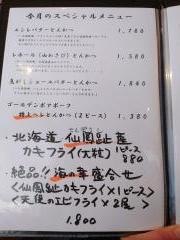 今月のスペシャルメニュー
エシレバターとんかつ 1,780
レホール(山わさび)とんかつ 1,380
ゴールデンボアポーク
特上ヘレとんかつ(2ピース) 1,380
・北海道 仙鳳趾産
カキフライ(大粒) 1ピース 880
・絶品!!海の幸盛合せ
〈仙鳳趾カキフライ×1ピース〉
〈天使のエビフライ×2尾〉
1,800